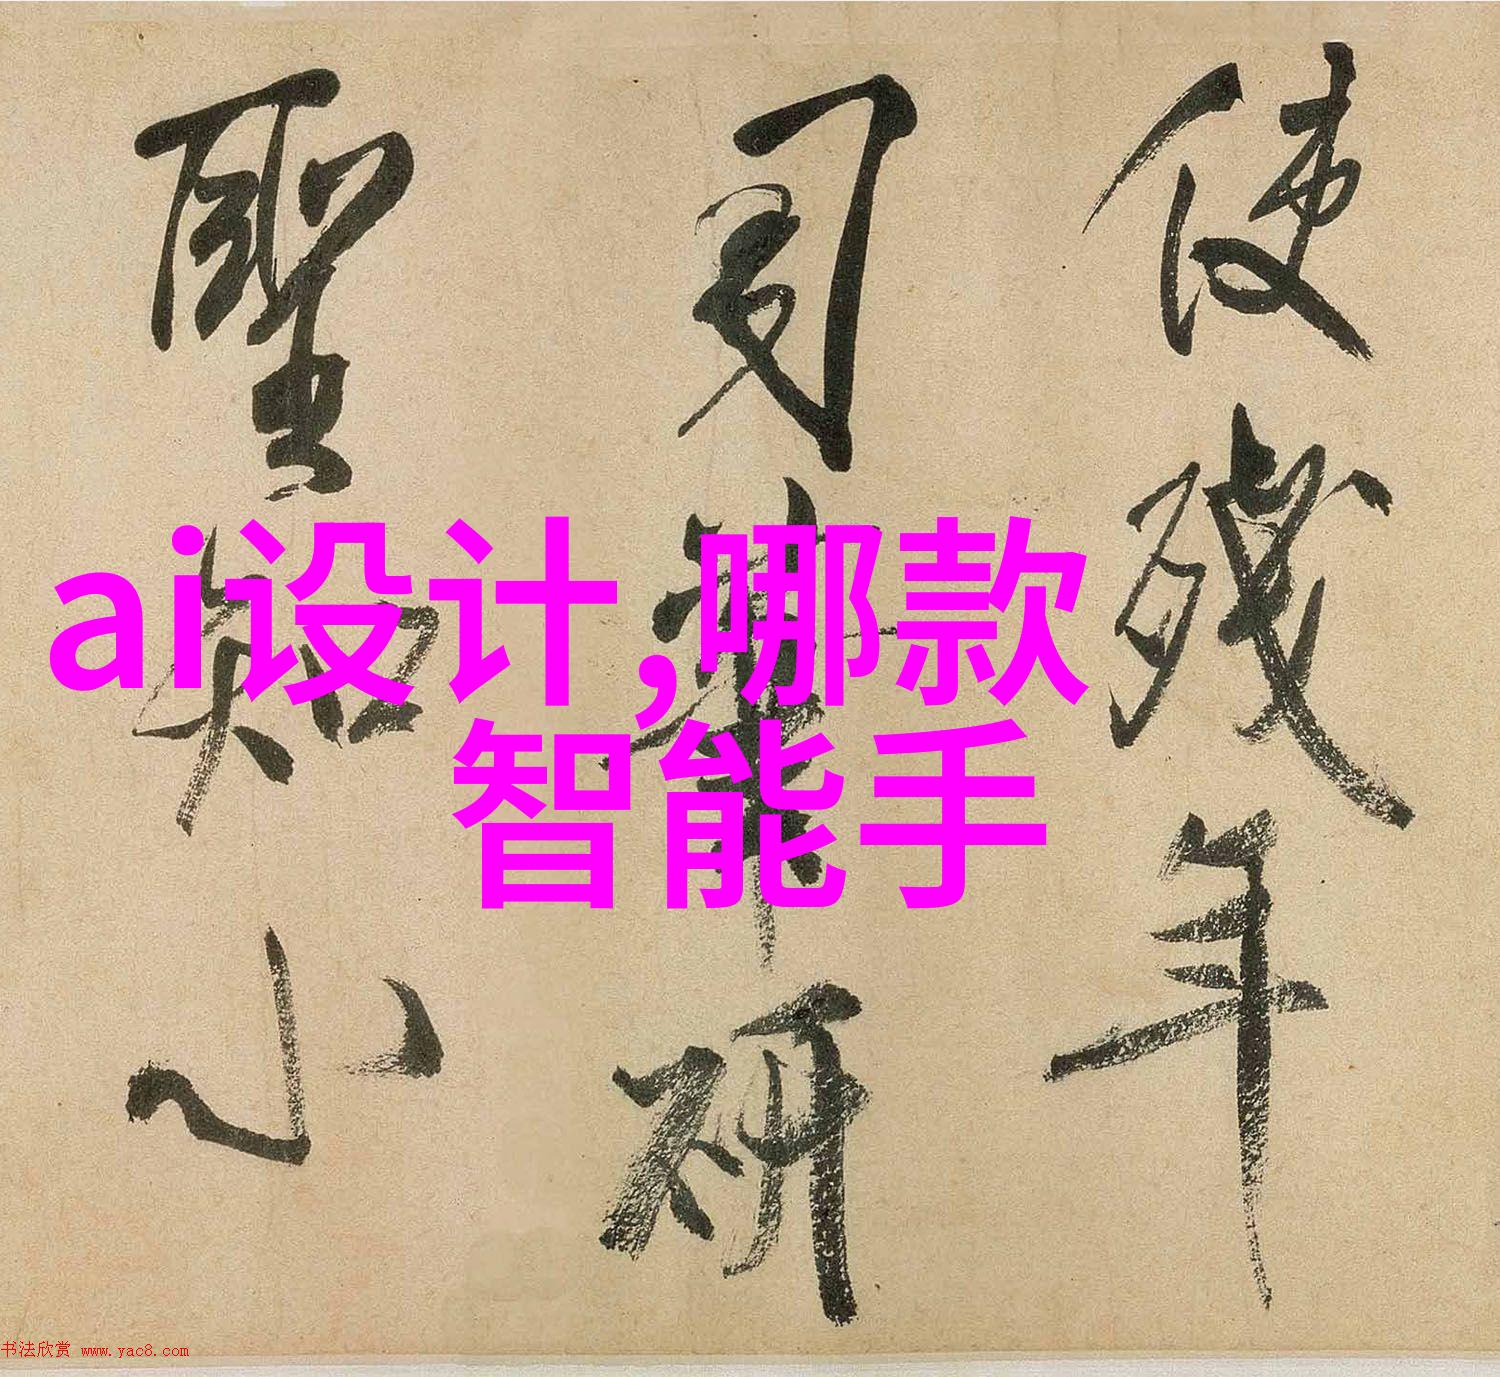 使残年
司笔研
聖知小
ai设计,哪款
智能手
书法欣赏 www.yac8.com